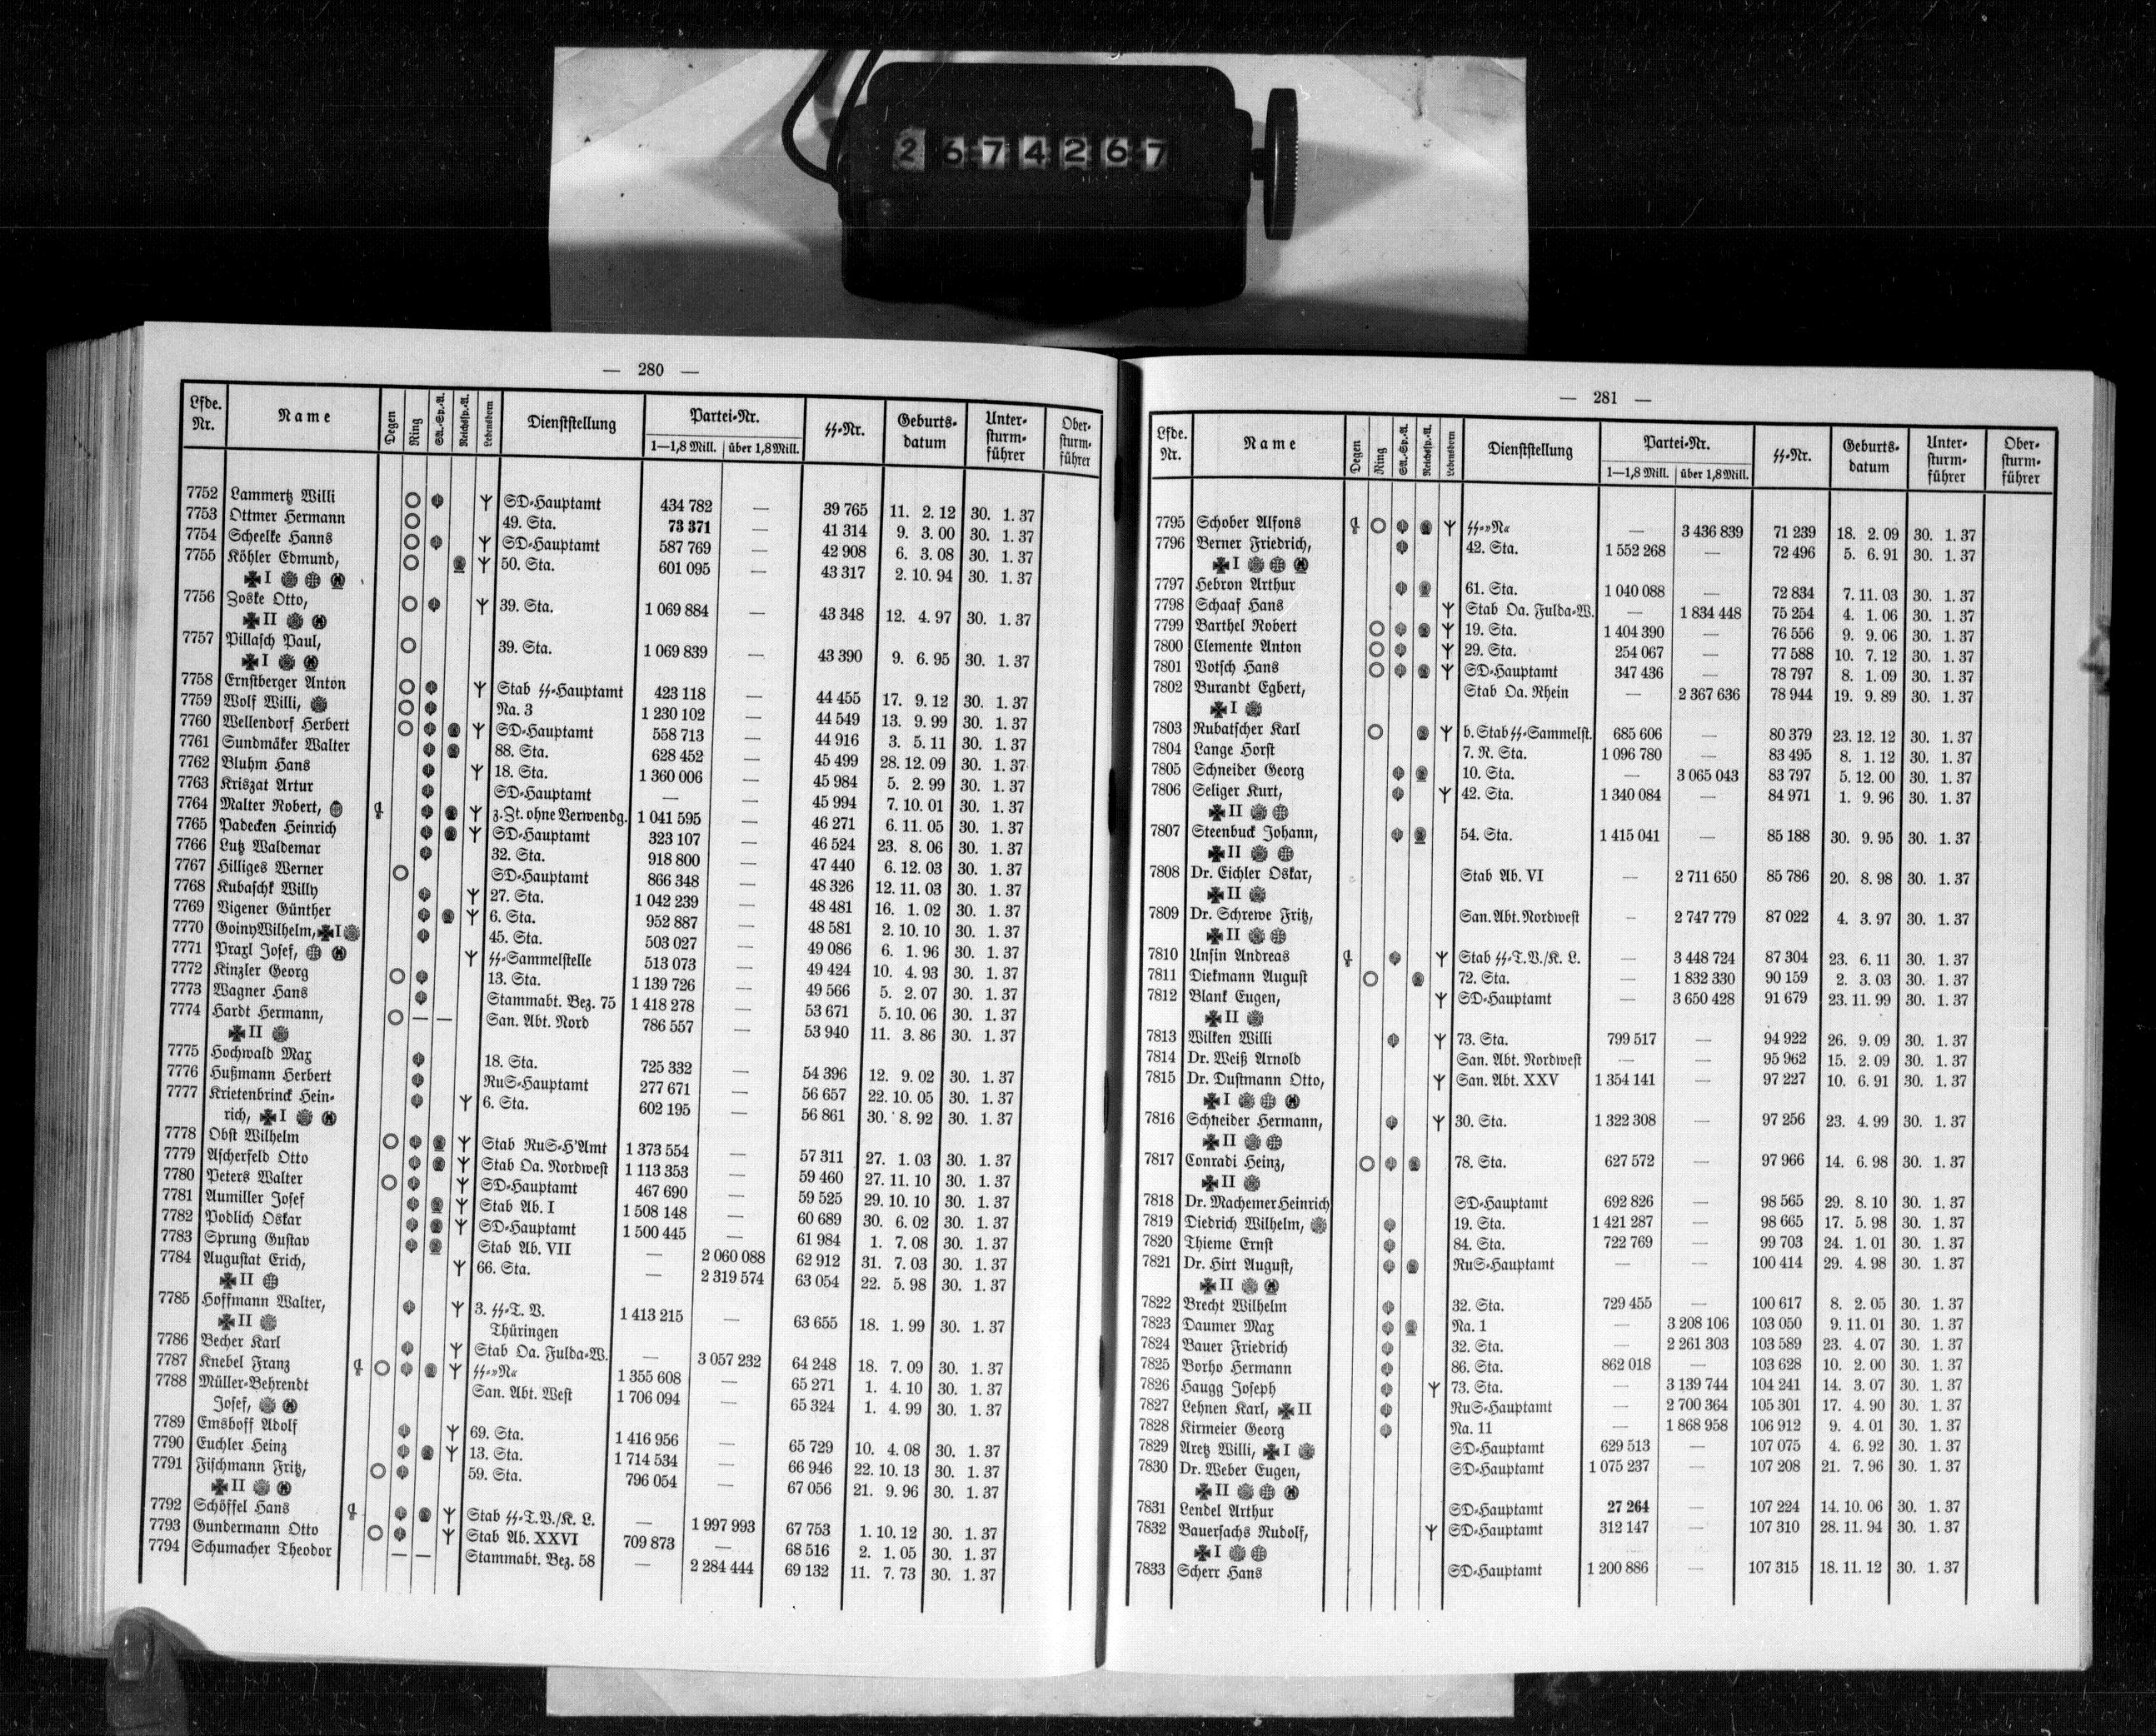 2674267
— 280 —
Lfde. Nr. Name Degen Ring SA.-Sp.-A. Reichssp.-A. Lebensborn Dienststellung Partei-Nr. 1—1,8 Mill. über 1,8 Mill. SS-Nr. Geburts-datum Unter-sturm-führer Ober-sturm-führer
7752 Lammertz Willi SD-Hauptamt 434 782 — 39 765 11. 2. 12 30. 1. 37
7753 Ottmer Hermann 49. Sta. 73 371 — 41 314 9. 3. 00 30. 1. 37
7754 Scheelke Hanns SD-Hauptamt 587 769 — 42 908 6. 3. 08 30. 1. 37
7755 Köhler Edmund, 50. Sta. 601 095 — 43 317 2. 10. 94 30. 1. 37
I
7756 Zoske Otto, 39. Sta. 1 069 884 — 43 348 12. 4. 97 30. 1. 37
II
7757 Pillasch Paul, 39. Sta. 1 069 839 — 43 390 9. 6. 95 30. 1. 37
I
7758 Ernstberger Anton Stab SS-Hauptamt 423 118 — 44 455 17. 9. 12 30. 1. 37
7759 Wolf Willi, Na. 3 1 230 102 — 44 549 13. 9. 99 30. 1. 37
7760 Wellendorf Herbert SD-Hauptamt 558 713 — 44 916 3. 5. 11 30. 1. 37
7761 Sundmäker Walter 88. Sta. 628 452 — 45 499 28. 12. 09 30. 1. 37
7762 Bluhm Hans 18. Sta. 1 360 006 — 45 984 5. 2. 99 30. 1. 37
7763 Kriszat Artur SD-Hauptamt — — 45 994 7. 10. 01 30. 1. 37
7764 Malter Robert, z. Zt. ohne Verwendg. 1 041 595 — 46 271 6. 11. 05 30. 1. 37
7765 Padecken Heinrich SD-Hauptamt 323 107 — 46 524 23. 8. 06 30. 1. 37
7766 Lutz Waldemar 32. Sta. 918 800 — 47 440 6. 12. 03 30. 1. 37
7767 Hilliges Werner SD-Hauptamt 866 348 — 48 326 12. 11. 03 30. 1. 37
7768 Kubaschk Willy 27. Sta. 1 042 239 — 48 481 16. 1. 02 30. 1. 37
7769 Vigener Günther 6. Sta. 952 887 — 48 581 2. 10. 10 30. 1. 37
7770 Goiny Wilhelm, I 45. Sta. 503 027 — 49 086 6. 1. 96 30. 1. 37
7771 Prazl Josef, SS-Sammelstelle 513 073 — 49 424 10. 4. 93 30. 1. 37
7772 Kinzler Georg 13. Sta. 1 139 726 — 49 566 5. 2. 07 30. 1. 37
7773 Wagner Hans Stammabt. Bez. 75 1 418 278 — 53 671 5. 10. 06 30. 1. 37
7774 Hardt Hermann, — — San. Abt. Nord 786 557 — 53 940 11. 3. 86 30. 1. 37
II
7775 Hochwald Max 18. Sta. 725 332 — 54 396 12. 9. 02 30. 1. 37
7776 Hußmann Herbert RuS-Hauptamt 277 671 — 56 657 22. 10. 05 30. 1. 37
7777 Krietenbrinck Hein- 6. Sta. 602 195 — 56 861 30. 8. 92 30. 1. 37
rich, I
7778 Obst Wilhelm Stab RuS-H'Amt 1 373 554 — 57 311 27. 1. 03 30. 1. 37
7779 Ascherfeld Otto Stab Oa. Nordwest 1 113 353 — 59 460 27. 11. 10 30. 1. 37
7780 Peters Walter SD-Hauptamt 467 690 — 59 525 29. 10. 10 30. 1. 37
7781 Aumiller Josef Stab Ab. I 1 508 148 — 60 689 30. 6. 02 30. 1. 37
7782 Podlich Oskar SD-Hauptamt 1 500 445 — 61 984 1. 7. 08 30. 1. 37
7783 Sprung Gustav Stab Ab. VII — 2 060 088 62 912 31. 7. 03 30. 1. 37
7784 Augustat Erich, 66. Sta. — 2 319 574 63 054 22. 5. 98 30. 1. 37
II
7785 Hoffmann Walter, 3. SS-T. V. 1 413 215 — 63 655 18. 1. 99 30. 1. 37
II Thüringen
7786 Becher Karl Stab Oa. Fulda-W. — 3 057 232 64 248 18. 7. 09 30. 1. 37
7787 Knebel Franz SS-»N« 1 355 608 — 65 271 1. 4. 10 30. 1. 37
7788 Müller-Behrendt San. Abt. West 1 706 094 — 65 324 1. 4. 99 30. 1. 37
Josef,
7789 Emshoff Adolf 69. Sta. 1 416 956 — 65 729 10. 4. 08 30. 1. 37
7790 Euchler Heinz 13. Sta. 1 714 534 — 66 946 22. 10. 13 30. 1. 37
7791 Fischmann Fritz, 59. Sta. 796 054 — 67 056 21. 9. 96 30. 1. 37
II
7792 Schöffel Hans Stab SS-T.V./K. L. — 1 997 993 67 753 1. 10. 12 30. 1. 37
7793 Gundermann Otto Stab Ab. XXVI 709 873 — 68 516 2. 1. 05 30. 1. 37
7794 Schumacher Theodor — — Stammabt. Bez. 58 — 2 284 444 69 132 11. 7. 73 30. 1. 37
— 281 —
Lfde. Nr. Name Degen Ring SA.-Sp.-A. Reichssp.-A. Lebensborn Dienststellung Partei-Nr. 1—1,8 Mill. über 1,8 Mill. SS-Nr. Geburts-datum Unter-sturm-führer Ober-sturm-führer
7795 Schober Alfons SS-»N« — 3 436 839 71 239 18. 2. 09 30. 1. 37
7796 Berner Friedrich, 42. Sta. 1 552 268 — 72 496 5. 6. 91 30. 1. 37
I
7797 Hebron Arthur 61. Sta. 1 040 088 — 72 834 7. 11. 03 30. 1. 37
7798 Schaaf Hans Stab Oa. Fulda-W. — 1 834 448 75 254 4. 1. 06 30. 1. 37
7799 Barthel Robert 19. Sta. 1 404 390 — 76 556 9. 9. 06 30. 1. 37
7800 Clemente Anton 29. Sta. 254 067 — 77 588 10. 7. 12 30. 1. 37
7801 Votsch Hans SD-Hauptamt 347 436 — 78 797 8. 1. 09 30. 1. 37
7802 Burandt Egbert, Stab Oa. Rhein — 2 367 636 78 944 19. 9. 89 30. 1. 37
I
7803 Rubatscher Karl b. Stab SS-Sammelst. 685 606 — 80 379 23. 12. 12 30. 1. 37
7804 Lange Horst 7. R. Sta. 1 096 780 — 83 495 8. 1. 12 30. 1. 37
7805 Schneider Georg 10. Sta. — 3 065 043 83 797 5. 12. 00 30. 1. 37
7806 Seliger Kurt, 42. Sta. 1 340 084 — 84 971 1. 9. 96 30. 1. 37
II
7807 Steenbuck Johann, 54. Sta. 1 415 041 — 85 188 30. 9. 95 30. 1. 37
II
7808 Dr. Eichler Oskar, Stab Ab. VI — 2 711 650 85 786 20. 8. 98 30. 1. 37
II
7809 Dr. Schrewe Fritz, San. Abt. Nordwest — 2 747 779 87 022 4. 3. 97 30. 1. 37
II
7810 Unsin Andreas Stab SS-T.V./K. L. — 3 448 724 87 304 23. 6. 11 30. 1. 37
7811 Diekmann August 72. Sta. — 1 832 330 90 159 2. 3. 03 30. 1. 37
7812 Blank Eugen, SD-Hauptamt — 3 650 428 91 679 23. 11. 99 30. 1. 37
II
7813 Wilken Willi 73. Sta. 799 517 — 94 922 26. 9. 09 30. 1. 37
7814 Dr. Weiß Arnold San. Abt. Nordwest — — 95 962 15. 2. 09 30. 1. 37
7815 Dr. Dustmann Otto, San. Abt. XXV 1 354 141 — 97 227 10. 6. 91 30. 1. 37
I
7816 Schneider Hermann, 30. Sta. 1 322 308 — 97 256 23. 4. 99 30. 1. 37
II
7817 Conradi Heinz, 78. Sta. 627 572 — 97 966 14. 6. 98 30. 1. 37
II
7818 Dr. Machemer Heinrich SD-Hauptamt 692 826 — 98 565 29. 8. 10 30. 1. 37
7819 Diedrich Wilhelm, 19. Sta. 1 421 287 — 98 665 17. 5. 98 30. 1. 37
7820 Thieme Ernst 84. Sta. 722 769 — 99 703 24. 1. 01 30. 1. 37
7821 Dr. Hirt August, RuS-Hauptamt — — 100 414 29. 4. 98 30. 1. 37
II
7822 Brecht Wilhelm 32. Sta. 729 455 — 100 617 8. 2. 05 30. 1. 37
7823 Daumer Max Na. 1 — 3 208 106 103 050 9. 11. 01 30. 1. 37
7824 Bauer Friedrich 32. Sta. — 2 261 303 103 589 23. 4. 07 30. 1. 37
7825 Borho Hermann 86. Sta. 862 018 — 103 628 10. 2. 00 30. 1. 37
7826 Haugg Joseph 73. Sta. — 3 139 744 104 241 14. 3. 07 30. 1. 37
7827 Lehnen Karl, II RuS-Hauptamt — 2 700 364 105 301 17. 4. 90 30. 1. 37
7828 Kirmeier Georg Na. 11 — 1 868 958 106 912 9. 4. 01 30. 1. 37
7829 Aretz Willi, I SD-Hauptamt 629 513 — 107 075 4. 6. 92 30. 1. 37
7830 Dr. Weber Eugen, SD-Hauptamt 1 075 237 — 107 208 21. 7. 96 30. 1. 37
II
7831 Lendel Arthur SD-Hauptamt 27 264 — 107 224 14. 10. 06 30. 1. 37
7832 Bauersachs Rudolf, SD-Hauptamt 312 147 — 107 310 28. 11. 94 30. 1. 37
I
7833 Scherr Hans SD-Hauptamt 1 200 886 — 107 315 18. 11. 12 30. 1. 37